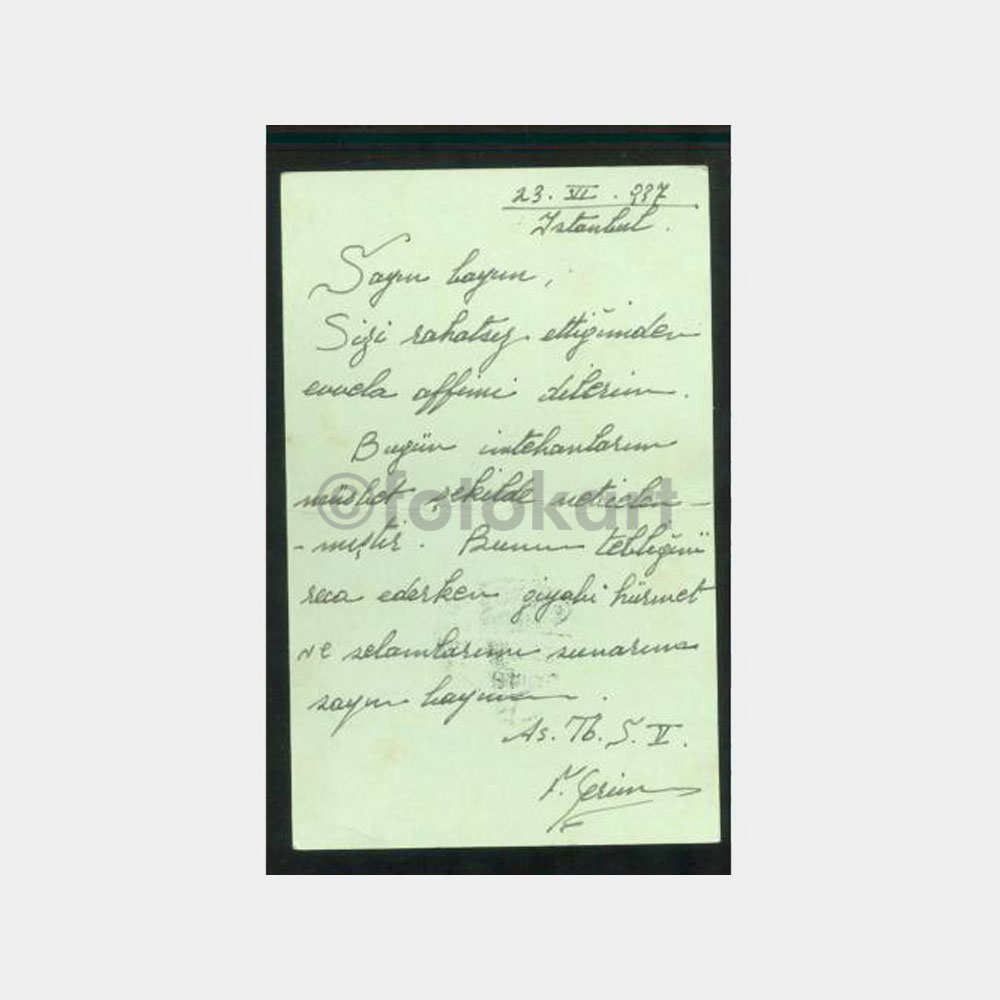 23. VI. 937
Istanbul.
Sayın bayım,
Sizi rahatsız ettiğimden
evvela affimi dilerim.
Bugün imtehanlarım
müsbet şekilde neticelen-
-miştir. Bunu tebliğini
©fotokart
rica ederken gıyabi hürmet
ve selamlarımı sunarım
sayın bayım.
As. Tb. S. V.